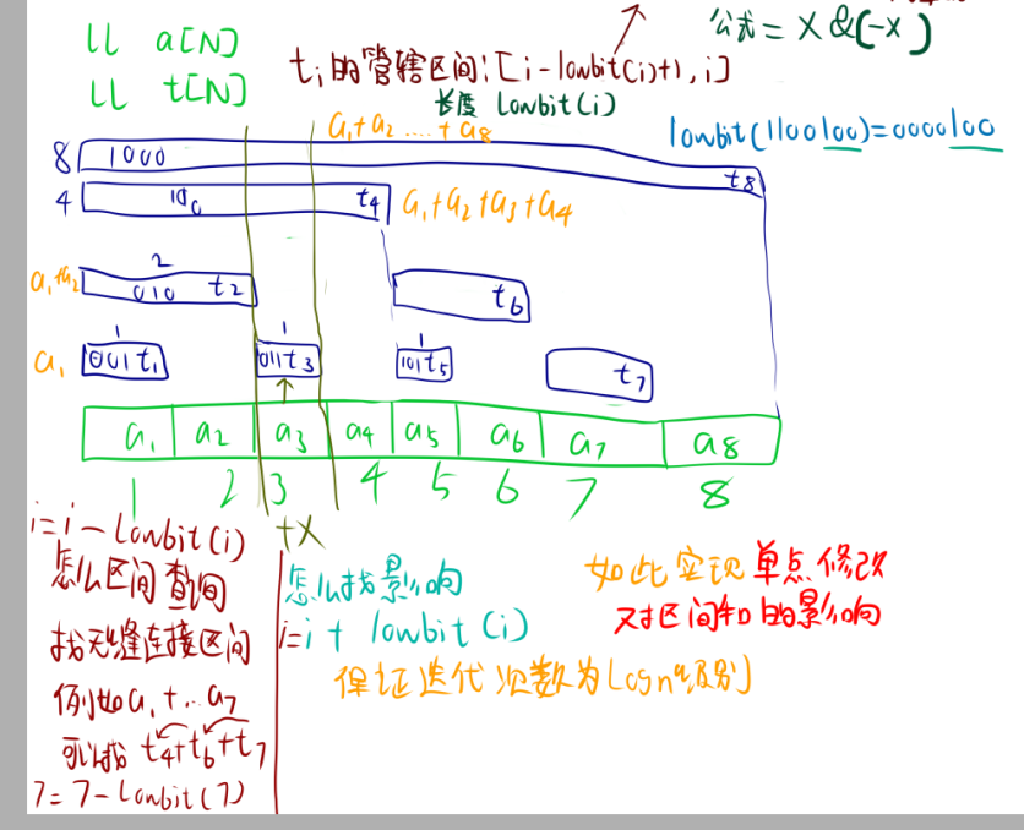 公式 = X &(-X)
ll a[N]
ll t[N]
ti的管辖区间:[i-lowbit(i)+1,i]
长度 lowbit(i)
a1+a2....+a8
lowbit(1100100)=0000100
8 1000 t8
4 100 t4 a1+a2+a3+a4
2
a1+a2 010 t2 t6
1 1 1
a1 001t1 011t3 101t5 t7
a1 a2 a3 a4 a5 a6 a7 a8
1 2 3 4 5 6 7 8
+X
i=i-lowbit(i)
怎么区间查询
找无缝连接区间
例如a1+..a7
可以找 t4+t6+t7
7=7-lowbit(7)
怎么找影响
i=i+lowbit(i)
保证迭代次数为logn级别
如此实现单点修改
对区间和的影响